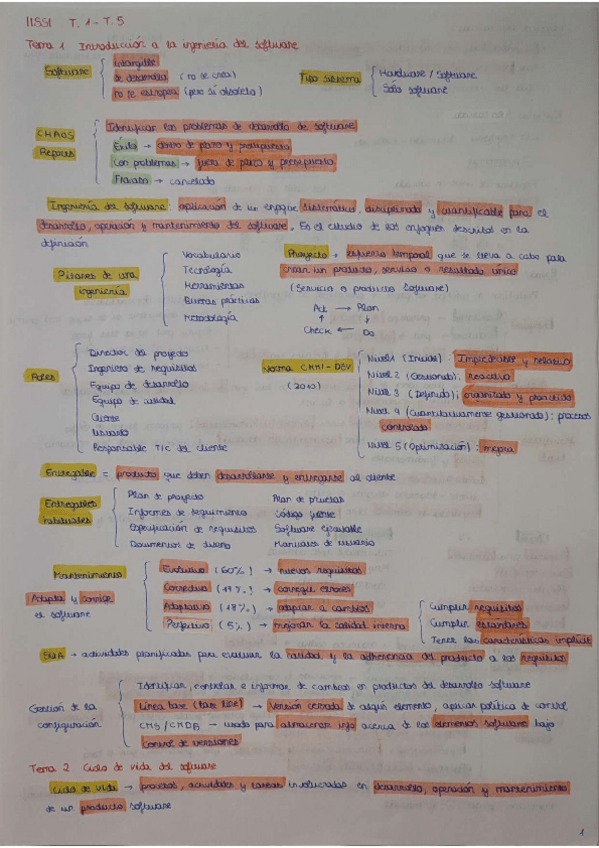 IISSI T.1 - T.5
Tema 1 Introducción a la ingeniería del software
Software
intangible
se desarrolla (no se crea)
no se estropea (pero sí obsoleto)
Tipo sistema
Hardware / Software
Sólo software
CHAOS Report
Identificar los problemas de desarrollo de software
Éxito → dentro de plazo y presupuesto
Con problemas → fuera de plazo y presupuesto
Fracaso → cancelado
Ingeniería del software: aplicación de un enfoque sistemático, disciplinado y cuantificable para el
desarrollo, operación y mantenimiento del software. Es el estudio de los enfoques descritos en la
definición
Pilares de una
ingeniería
Vocabulario
Tecnología
Herramientas
Buenas prácticas
Metodología
Proyecto → esfuerzo temporal que se lleva a cabo para
crear un producto, servicio o resultado único
(Servicio o producto Software)
Act → Plan
↑ ↓
Check ← Do
Roles
Director del proyecto
Ingeniero de requisitos
Equipo de desarrollo
Equipo de calidad
Cliente
Usuario
Responsable TIC del cliente
Norma CMMI-DEV
(2010)
Nivel 1 (Inicial): Impredecible y
Nivel 2 (Gestionado): reactiva
Nivel 3 (Definido): organizado y proactivo
Nivel 4 (Cuantitativamente gestionado): procesos
controlado
Nivel 5 (Optimización): mejora
Entregable = producto que deben desarrollarse y entregarse al cliente
Entregables
habituales
Plan de proyecto
Informes de seguimiento
Especificación de requisitos
Documentos de diseño
Plan de pruebas
Código fuente
Software ejecutable
Manuales de usuario
Mantenimiento
Adapta y corrige
el software
Evolutivo (60%) → nuevos requisitos
Correctivo (17%) → corregir errores
Adaptativo (18%) → adaptar a cambios
Perfectivo (5%) → mejorar la calidad interna
Cumplir requisitos
Cumplir estándares
Tener las características implícit
SQA → actividades planificadas para evaluar la calidad y la adherencia del producto a los requisitos
Gestión de la
configuración
Identificar, controlar e informar de cambios en productos del desarrollo software
Línea base (base line) → Versión cerrada de algún elemento, aplicar política de control
CMS / CMDB → usado para almacenar info acerca de los elementos software bajo
control de versiones
Tema 2 Ciclo de vida del software
Ciclo de vida → procesos, actividades y tareas involucradas en desarrollo, operación y mantenimiento
de un producto software
1